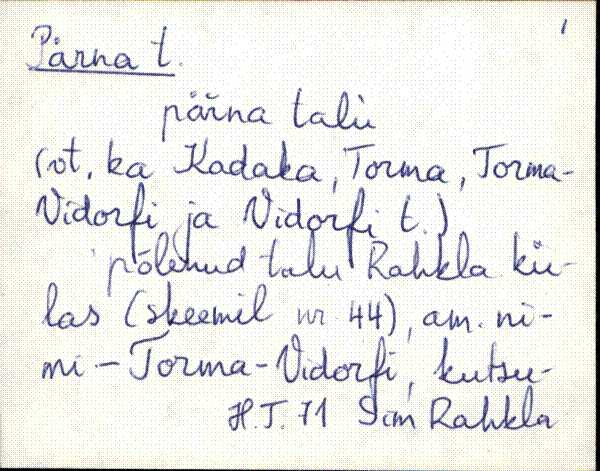 1
Pärna t.
pärna talu
(vt. ka Kadaka, Torma, Torma-
Vidorfi ja Vidorfi t.)
põlenud talu Rahkla kü-
las (skeemil nr. 44), am. ni-
mi - Torma-Vidorfi, kutsu-
H.T. 71 Sim Rahkla